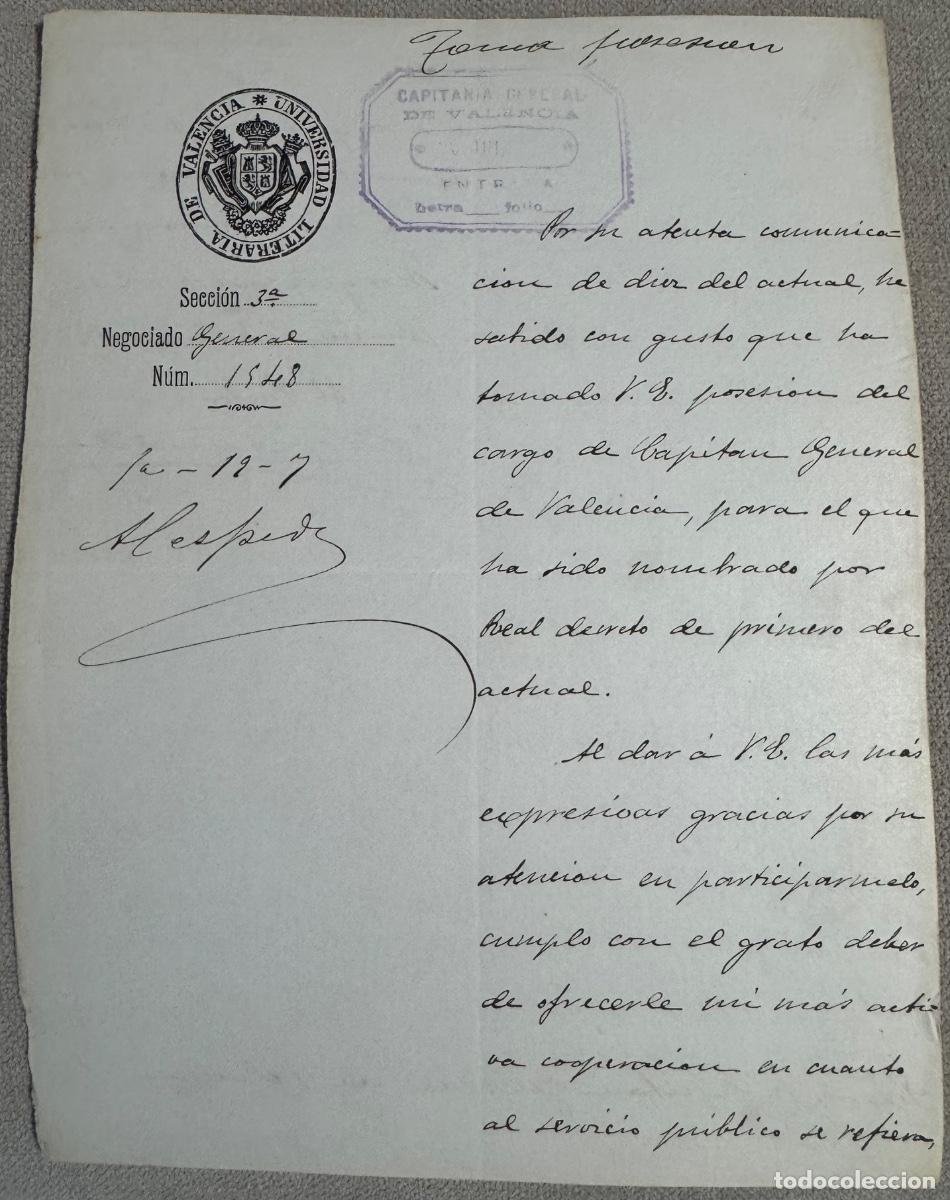 Toma posesion
UNIVERSIDAD LITERARIA DE VALENCIA
CAPITANÍA GENERAL
DE VALENCIA
ENTR A
Letra folio
Sección 3ª
Negociado General
Núm. 1548
12-7
Por su atenta comunica-
cion de diez del actual, he
sabido con gusto que ha
tomado V. E. posesion del
cargo de Capitan General
de Valencia, para el que
ha sido nombrado por
Real decreto de primero del
actual.
Al dar á V. E. las más
expresivas gracias por su
atencion en participarmelo,
cumplo con el grato deber
de ofrecerle mi más acti-
va cooperacion en cuanto
al servicio público se refiera,
todocoleccion